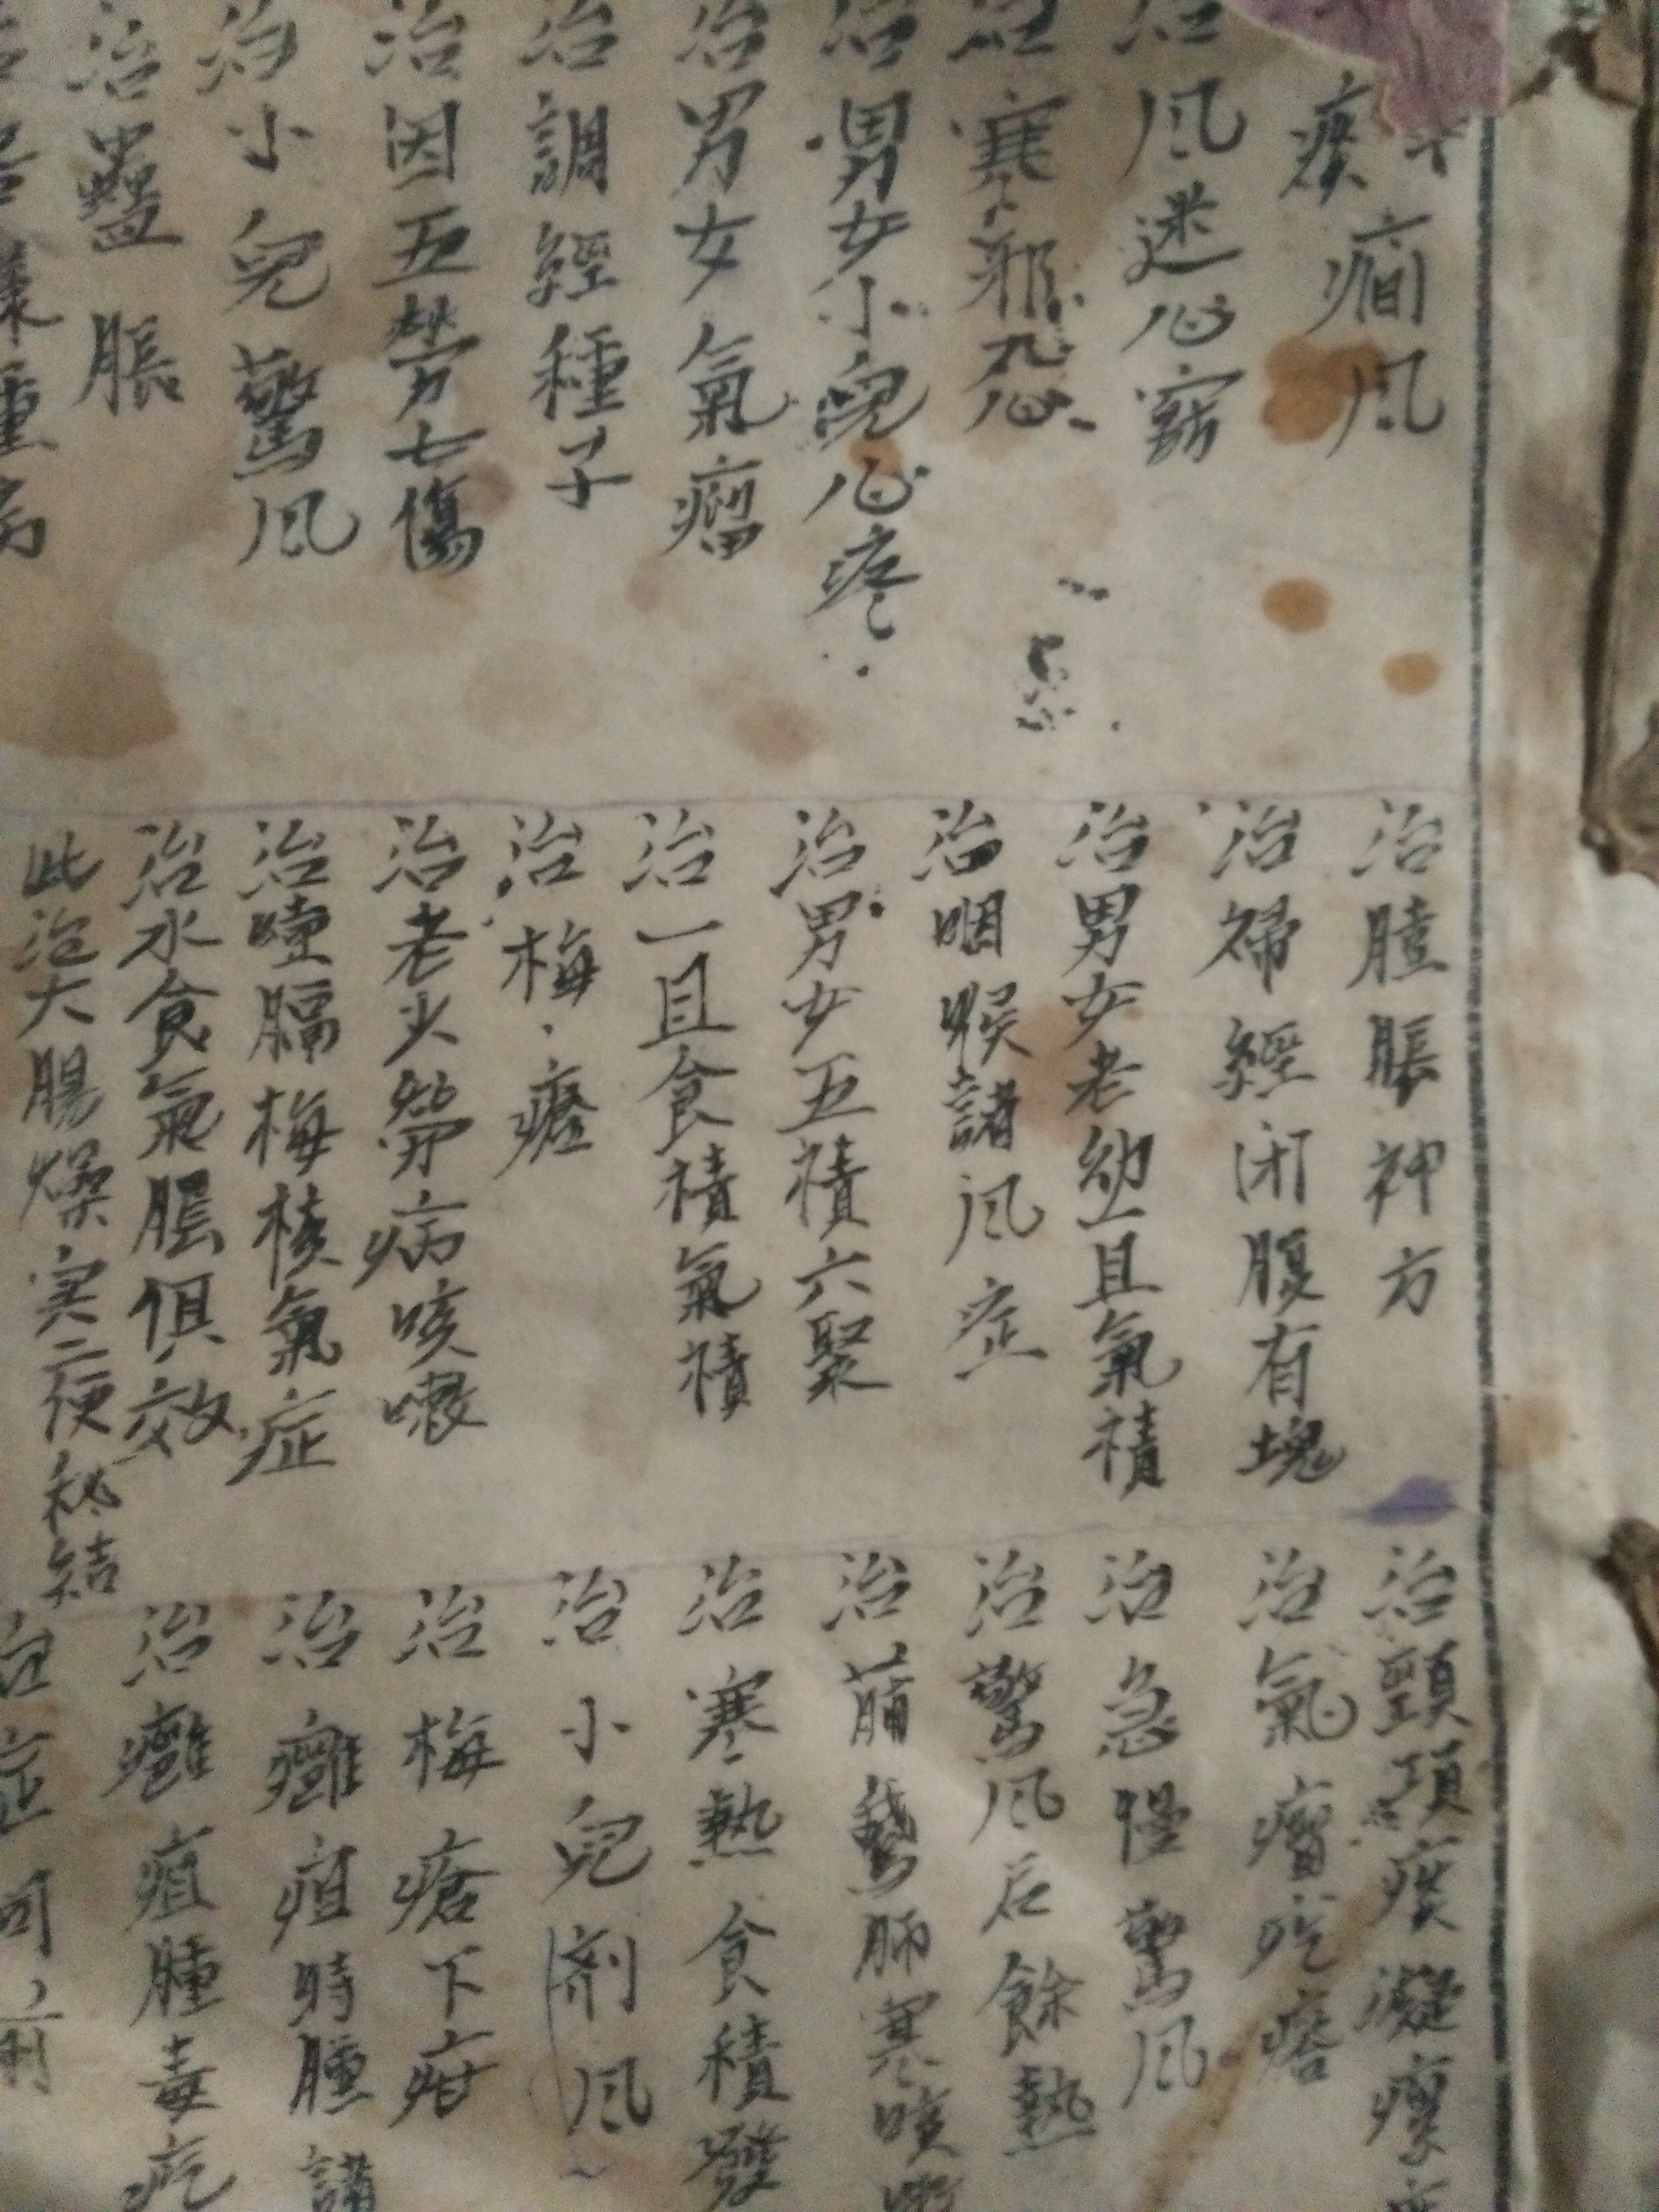 痰癇風
治風迷心竅
治寒邪忍
治男女小兒心疼
治男女氣瘤
治調經種子
治因五勞七傷
治小兒驚風
治蠱脹
治膨脹神方
治婦經闭腹有塊
治男女老幼且氣積
治咽喉諸风症
治男女五積六聚
治一且食積氣積
治梅瘡
治老少勞病咳嗽
治噎膈梅核氣症
治水食氣脹俱效
此治大腸燥实二便秘結
治頸項痰凝瘰
治氣瘤疙瘩
治急慢驚风
治驚风后餘熱
治肺寒咳嗽
治寒熱食積發
治小兒劑风
治梅瘡下疳
治癰疽時腫諸
治癰疽腫毒疙